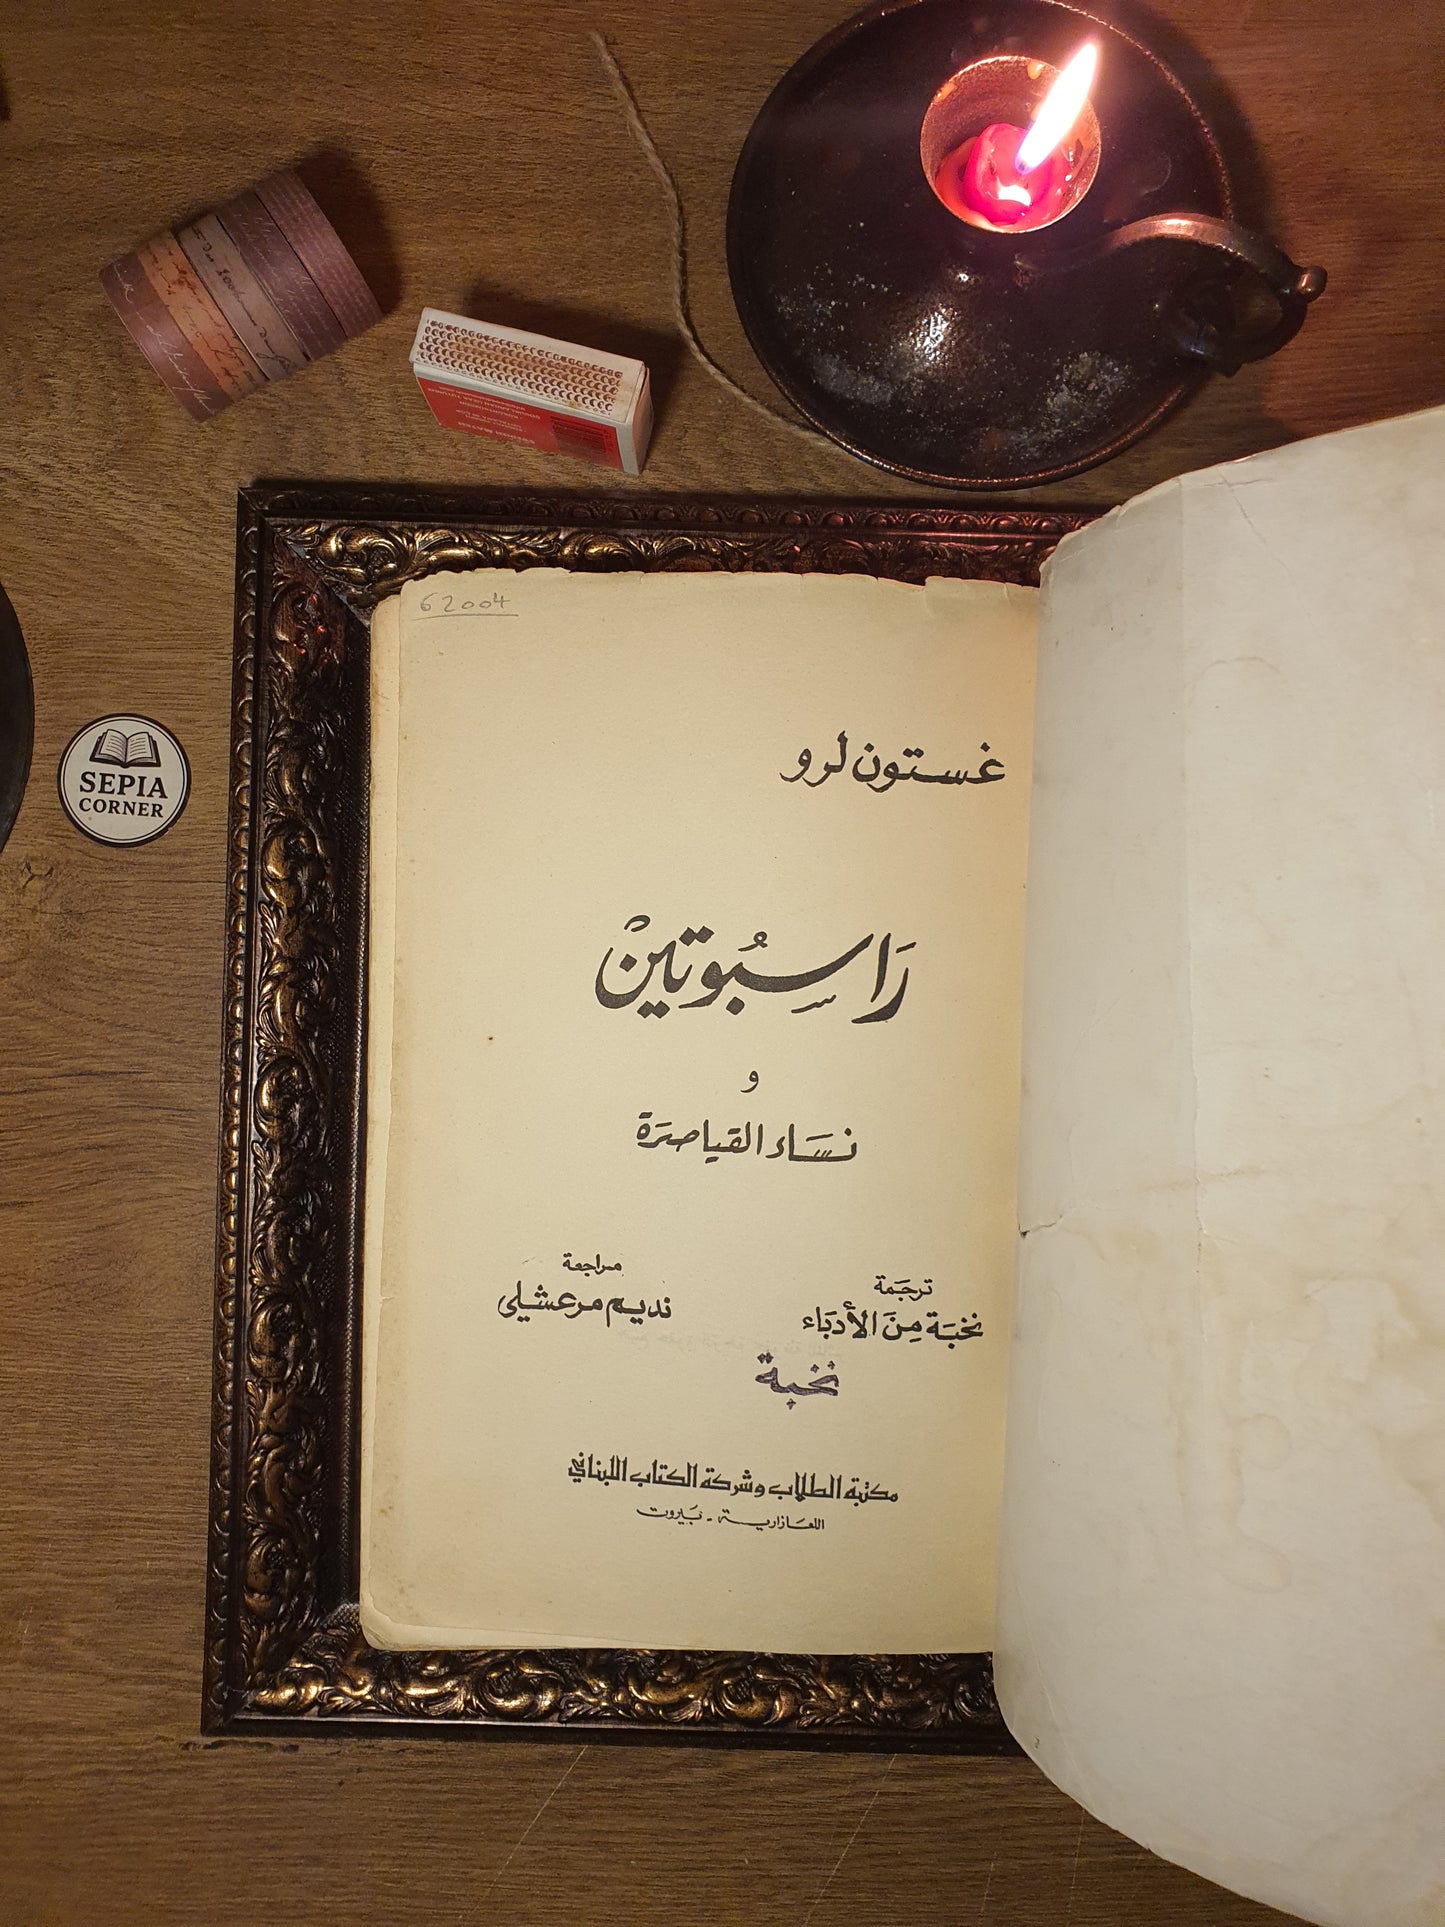 62004
غستون لرو
رَاسبُوتينْ
و
نسَاء القياصرَة
ترجَمة
نخبَة مِنَ الأدبَاء
مراجعة
نديم مرعشلي
نخبة
مكتبة الطلاب وشركة الكتاب اللبناني
اللعَازارية - بَيروت
SEPIA
CORNER